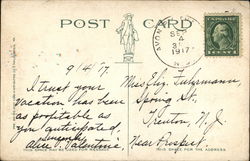 POST CARD
AVON
SEP
4
1917
N.J.
9/4/17.
I trust your
vacation has been
as profitable as
you anticipated.
Sincerely
Alice E. Valentine.
Miss Eliz. Fuhrmann
Spring St.
Trenton, N.J.
Near Prospect.
THIS SPACE FOR THE ADDRESS